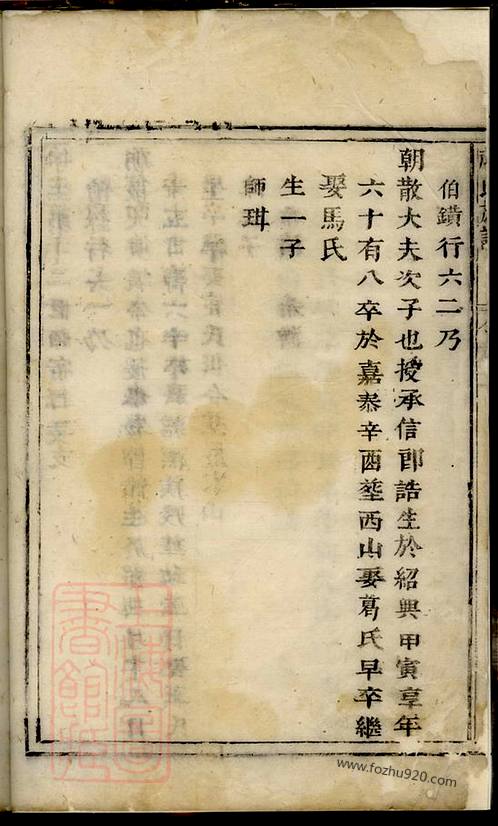 伯鐀行六二乃
朝散大夫次子也授承信郎誥生於紹興甲寅享年
六十有八卒於嘉泰辛酉塟西山娶葛氏早卒繼
娶馬氏
生一子
師珥
www.fozhu920.com